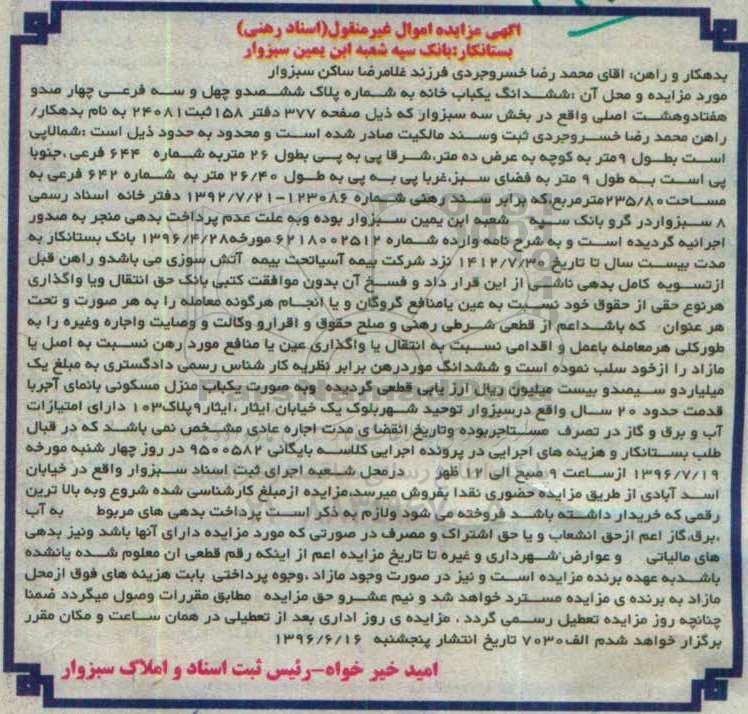 آگهی مزایده اموال غیرمنقول(اسناد رهنی)
بستانکار:بانک سپه شعبه ابن یمین سبزوار
بدهکار و راهن: اقای محمد رضا خسروجردی فرزند غلامرضا ساکن سبزوار
مورد مزایده و محل آن :ششدانگ یکباب خانه به شماره پلاک ششصدو چهل و سه فرعی چهار صدو
هفتادوهشت اصلی واقع در بخش سه سبزوار که ذیل صفحه ۳۷۷ دفتر ۱۵۸ثبت۲۴۰۸۱ به نام بدهکار/
راهن محمد رضا خسروجردی ثبت وسند مالکیت صادر شده است و محدود به حدود ذیل است :شمالاپی
است بطول ۹متر به کوچه به عرض ده متر،شرقا پی به پی بطول ۲۶ متربه شماره ۶۴۴ فرعی ،جنوبا
پی است به طول ۹ متر به فضای سبز،غربا پی به پی به طول ۲۶/۴۰ متر به شماره ۶۴۲ فرعی به
مساحت۲۳۵/۸۰مترمربع،که برابر سند رهنی شماره ۱۲۳۰۸۶-۱۳۹۲/۷/۲۱ دفتر خانه اسناد رسمی
۸ سبزواردر گرو بانک سپه شعبه ابن یمین سبزوار بوده وبه علت عدم پرداخت بدهی منجر به صدور
اجرائیه گردیده است و به شرح نامه وارده شماره ۶۲۱۸۰۰۲۵۱۲ مورخه۱۳۹۶/۴/۲۸ بانک بستانکار به
مدت بیست سال تا تاریخ ۱۴۱۲/۷/۳۰ نزد شرکت بیمه آسیاتحت بیمه آتش سوزی می باشدو راهن قبل
ازتسویه کامل بدهی ناشی از این قرار داد و فسخ آن بدون موافقت کتبی بانک حق انتقال ویا واگذاری
هرنوع حقی از حقوق خود نسبت به عین یامنافع گروگان و یا انجام هرگونه معامله را به هر صورت و تحت
هر عنوان که باشداعم از قطعی شرطی رهنی و صلح حقوق و اقرارو وکالت و وصایت واجاره وغیره را به
طورکلی هرمعامله باعمل و اقدامی نسبت به انتقال یا واگذاری عین یا منافع مورد رهن نسبت به اصل یا
مازاد را ازخود سلب نموده است و ششدانگ موردرهن برابر نظریه کار شناس رسمی دادگستری به مبلغ یک
میلیاردو سیصدو بیست میلیون ریال ارزیابی قطعی گردیده وبه صورت یکباب منزل مسکونی بانمای آجربا
قدمت حدود ۲۰ سال واقع درسبزوار توحید شهربلوک یک خیابان ایثار ،ایثار۹پلاک۱۰۳ دارای امتیازات
آب و برق و گاز در تصرف مستاجربوده وتاریخ انقضا ی مدت اجاره عادی مشخص نمی باشد که در قبال
طلب بستانکار و هزینه های اجرایی در پرونده اجرایی کلاسه بایگانی ۹۵۰۰۵۸۲ در روز چهار شنبه مورخه
۱۳۹۶/۷/۱۹ ازساعت ۹ صبح الی ۱۲ ظهر درمحل شعبه اجرای ثبت اسناد سبزوار واقع در خیابان
اسد آبادی از طریق مزایده حضوری نقدا بفروش میرسد،مزایده ازمبلغ کارشناسی شده شروع وبه بالا ترین
رقمی که خریدار داشته باشد فروخته می شود ولازم به ذکر است پرداخت بدهی های مربوط به آب
،برق،گاز اعم ازحق انشعاب و یا حق اشتراک و مصرف در صورتی که مورد مزایده دارای آنها باشد ونیز بدهی
های مالیاتی و عوارض شهرداری و غیره تا تاریخ مزایده اعم از اینکه رقم قطعی ان معلوم شده یانشده
باشدبه عهده برنده مزایده است و نیز در صورت وجود مازاد ،وجوه پرداختی بابت هزینه های فوق ازمحل
مازاد به برنده ی مزایده مسترد خواهد شد و نیم عشرو حق مزایده مطابق مقررات وصول میگردد ضمنا
چنانچه روز مزایده تعطیل رسمی گردد ، مزایده ی روز اداری بعد از تعطیلی در همان ساعت و مکان مقرر
برگزار خواهد شدم الف۷۰۳۰ تاریخ انتشار پنجشنبه ۱۳۹۶/۶/۱۶
امید خیر خواه-رئیس ثبت اسناد و املاک سبزوار